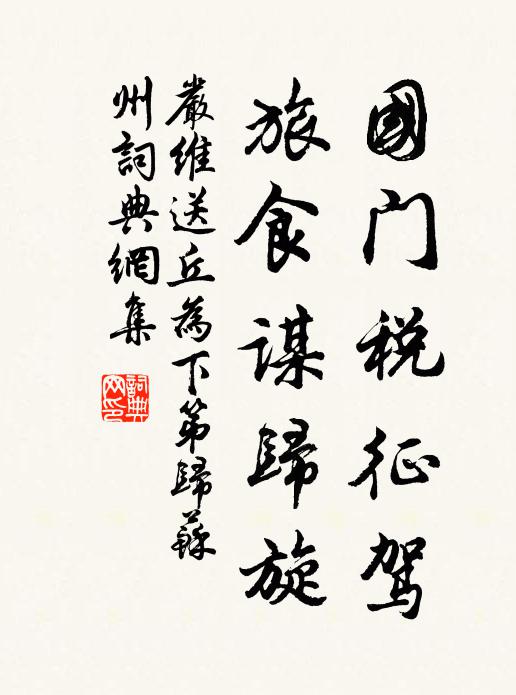 國门税征駕
旅食謀歸旋
嚴維送丘為下第歸蘇
州詞典網集
詞典
网印